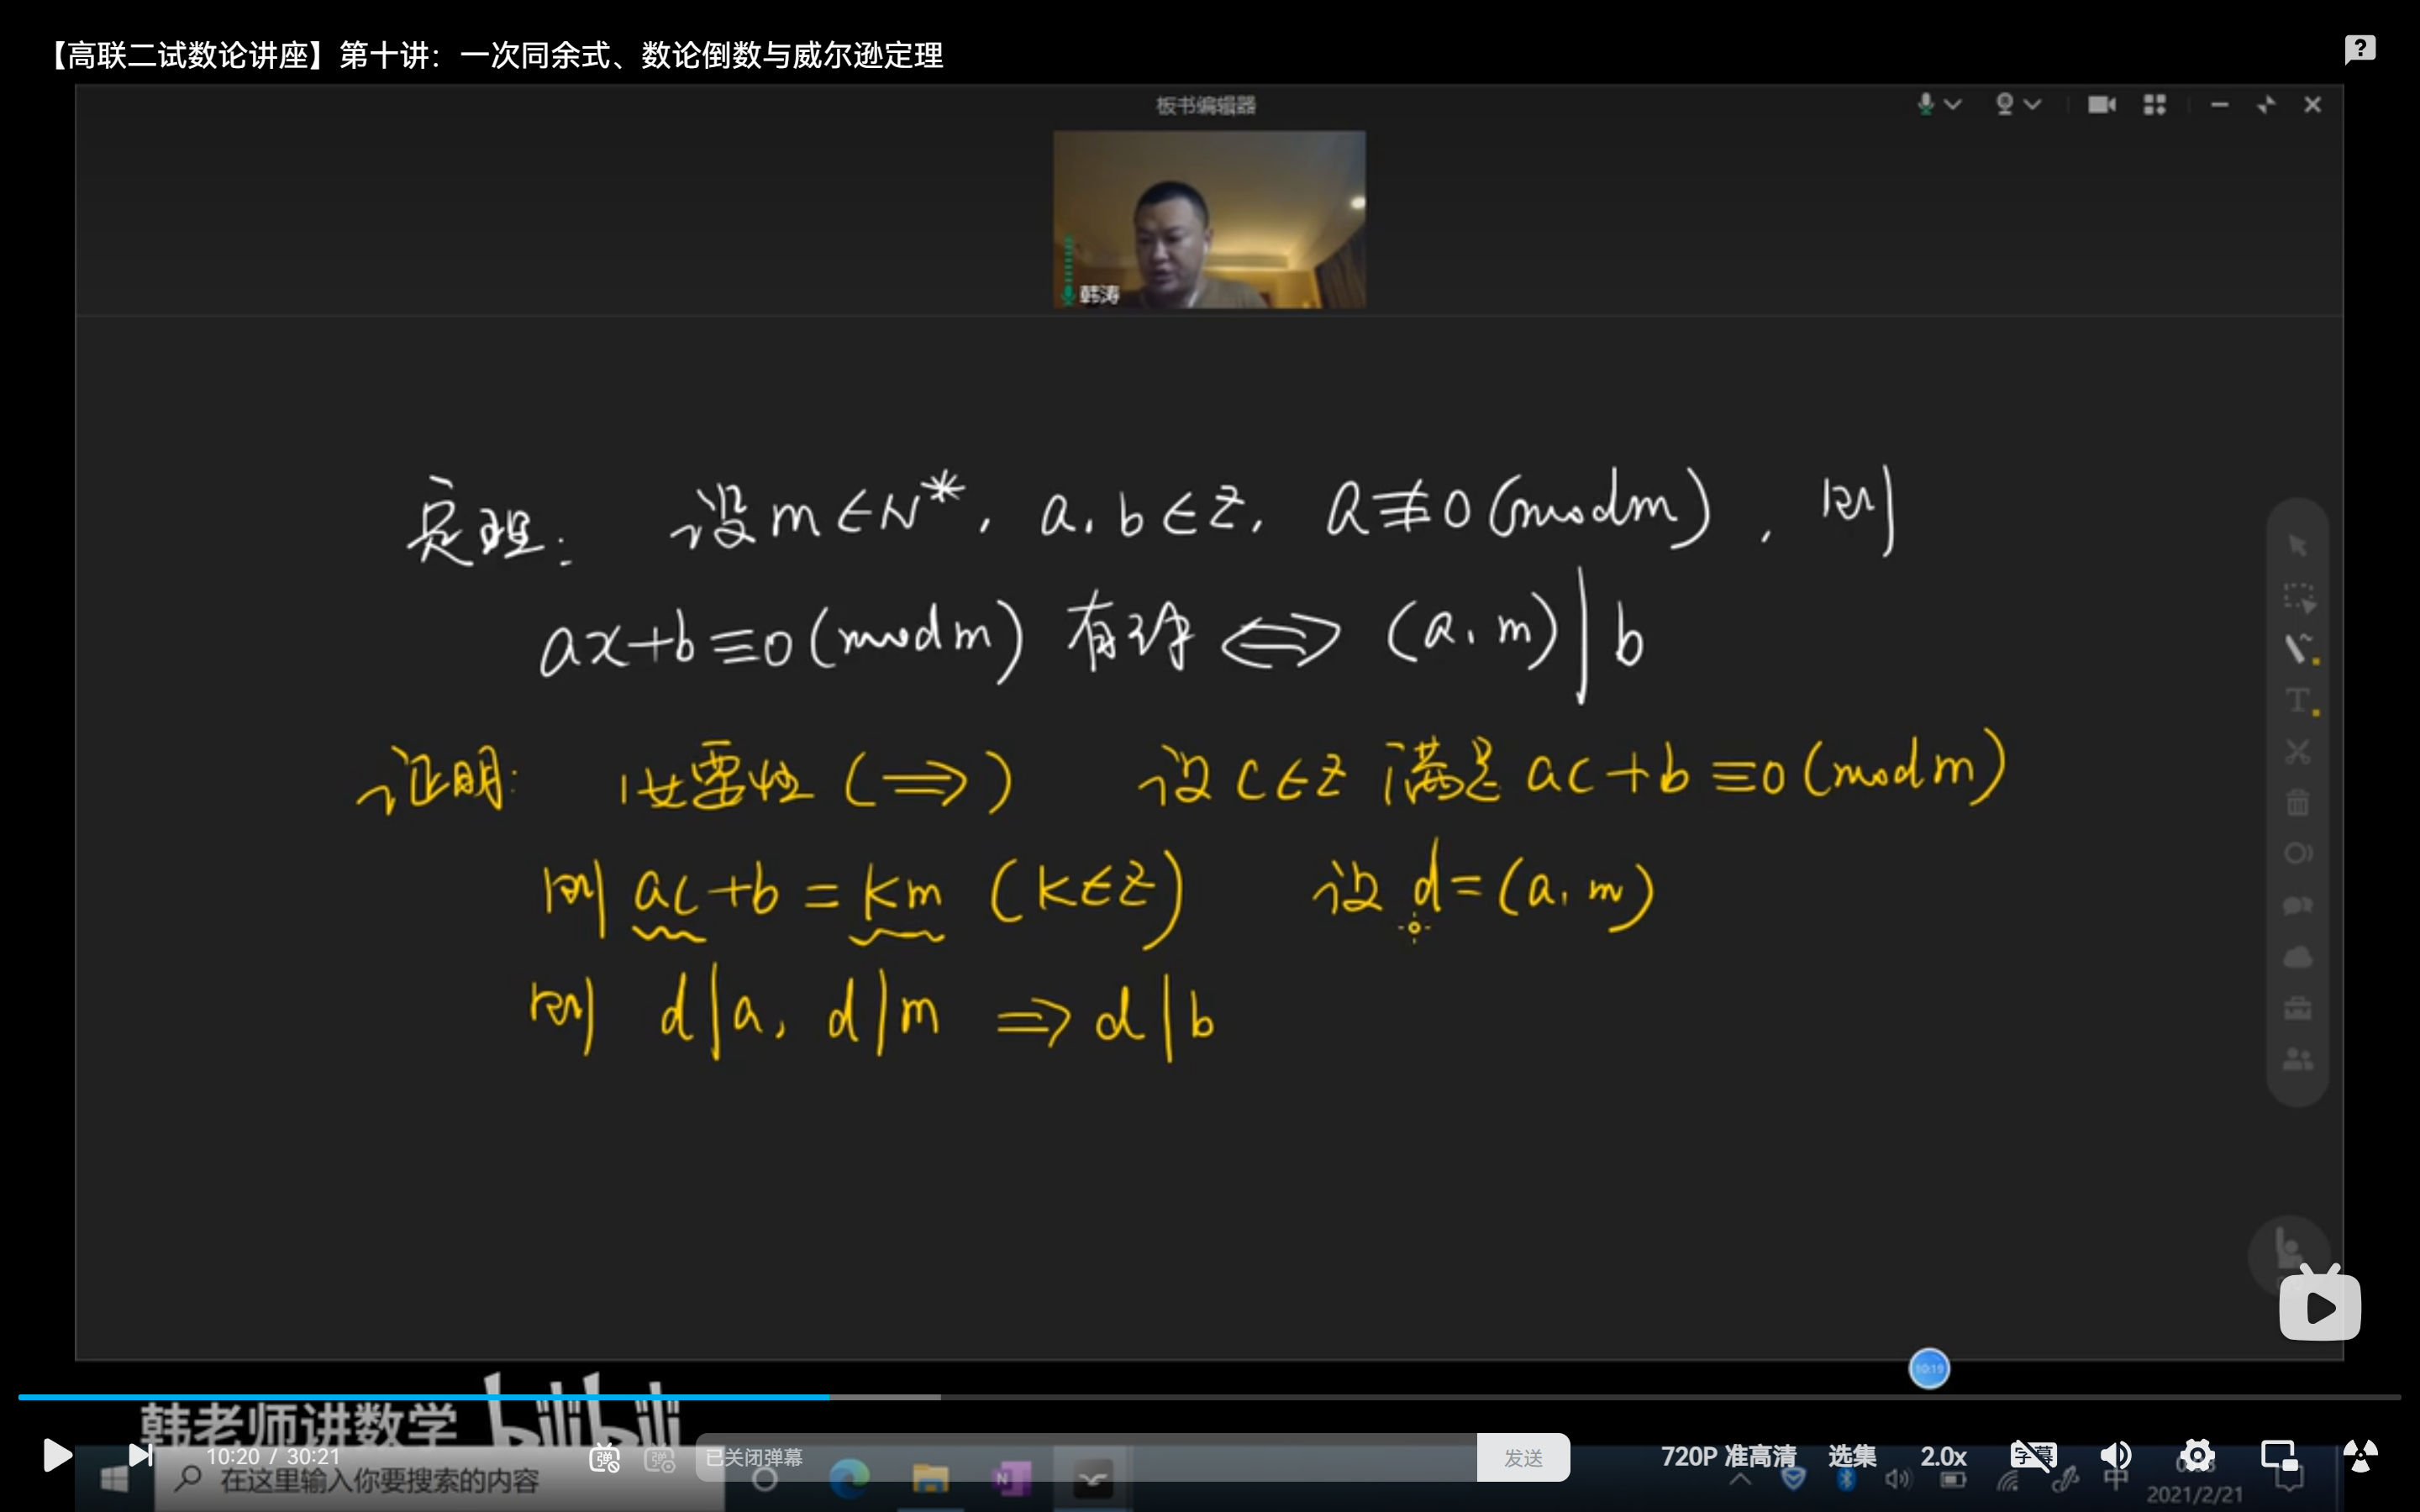 【高联二试数论讲座】第十讲：一次同余式、数论倒数与威尔逊定理
板书编辑器
韩涛
定理： 设 m∈N*, a, b∈Z, a≢0(mod m), 则
ax+b≡0(mod m) 有解 ⟺ (a, m)|b
证明: 必要性 (⟹) 设 c∈Z 满足 ac+b≡0(mod m)
则 ac+b=km (k∈Z) 设 d=(a, m)
则 d|a, d|m ⟹ d|b
韩老师讲数学 bilibili
10:20 / 30:21 弹 弹 已关闭弹幕 发送 720P 准高清 选集 2.0x 字幕
在这里输入你要搜索的内容 N 中
2021/2/21